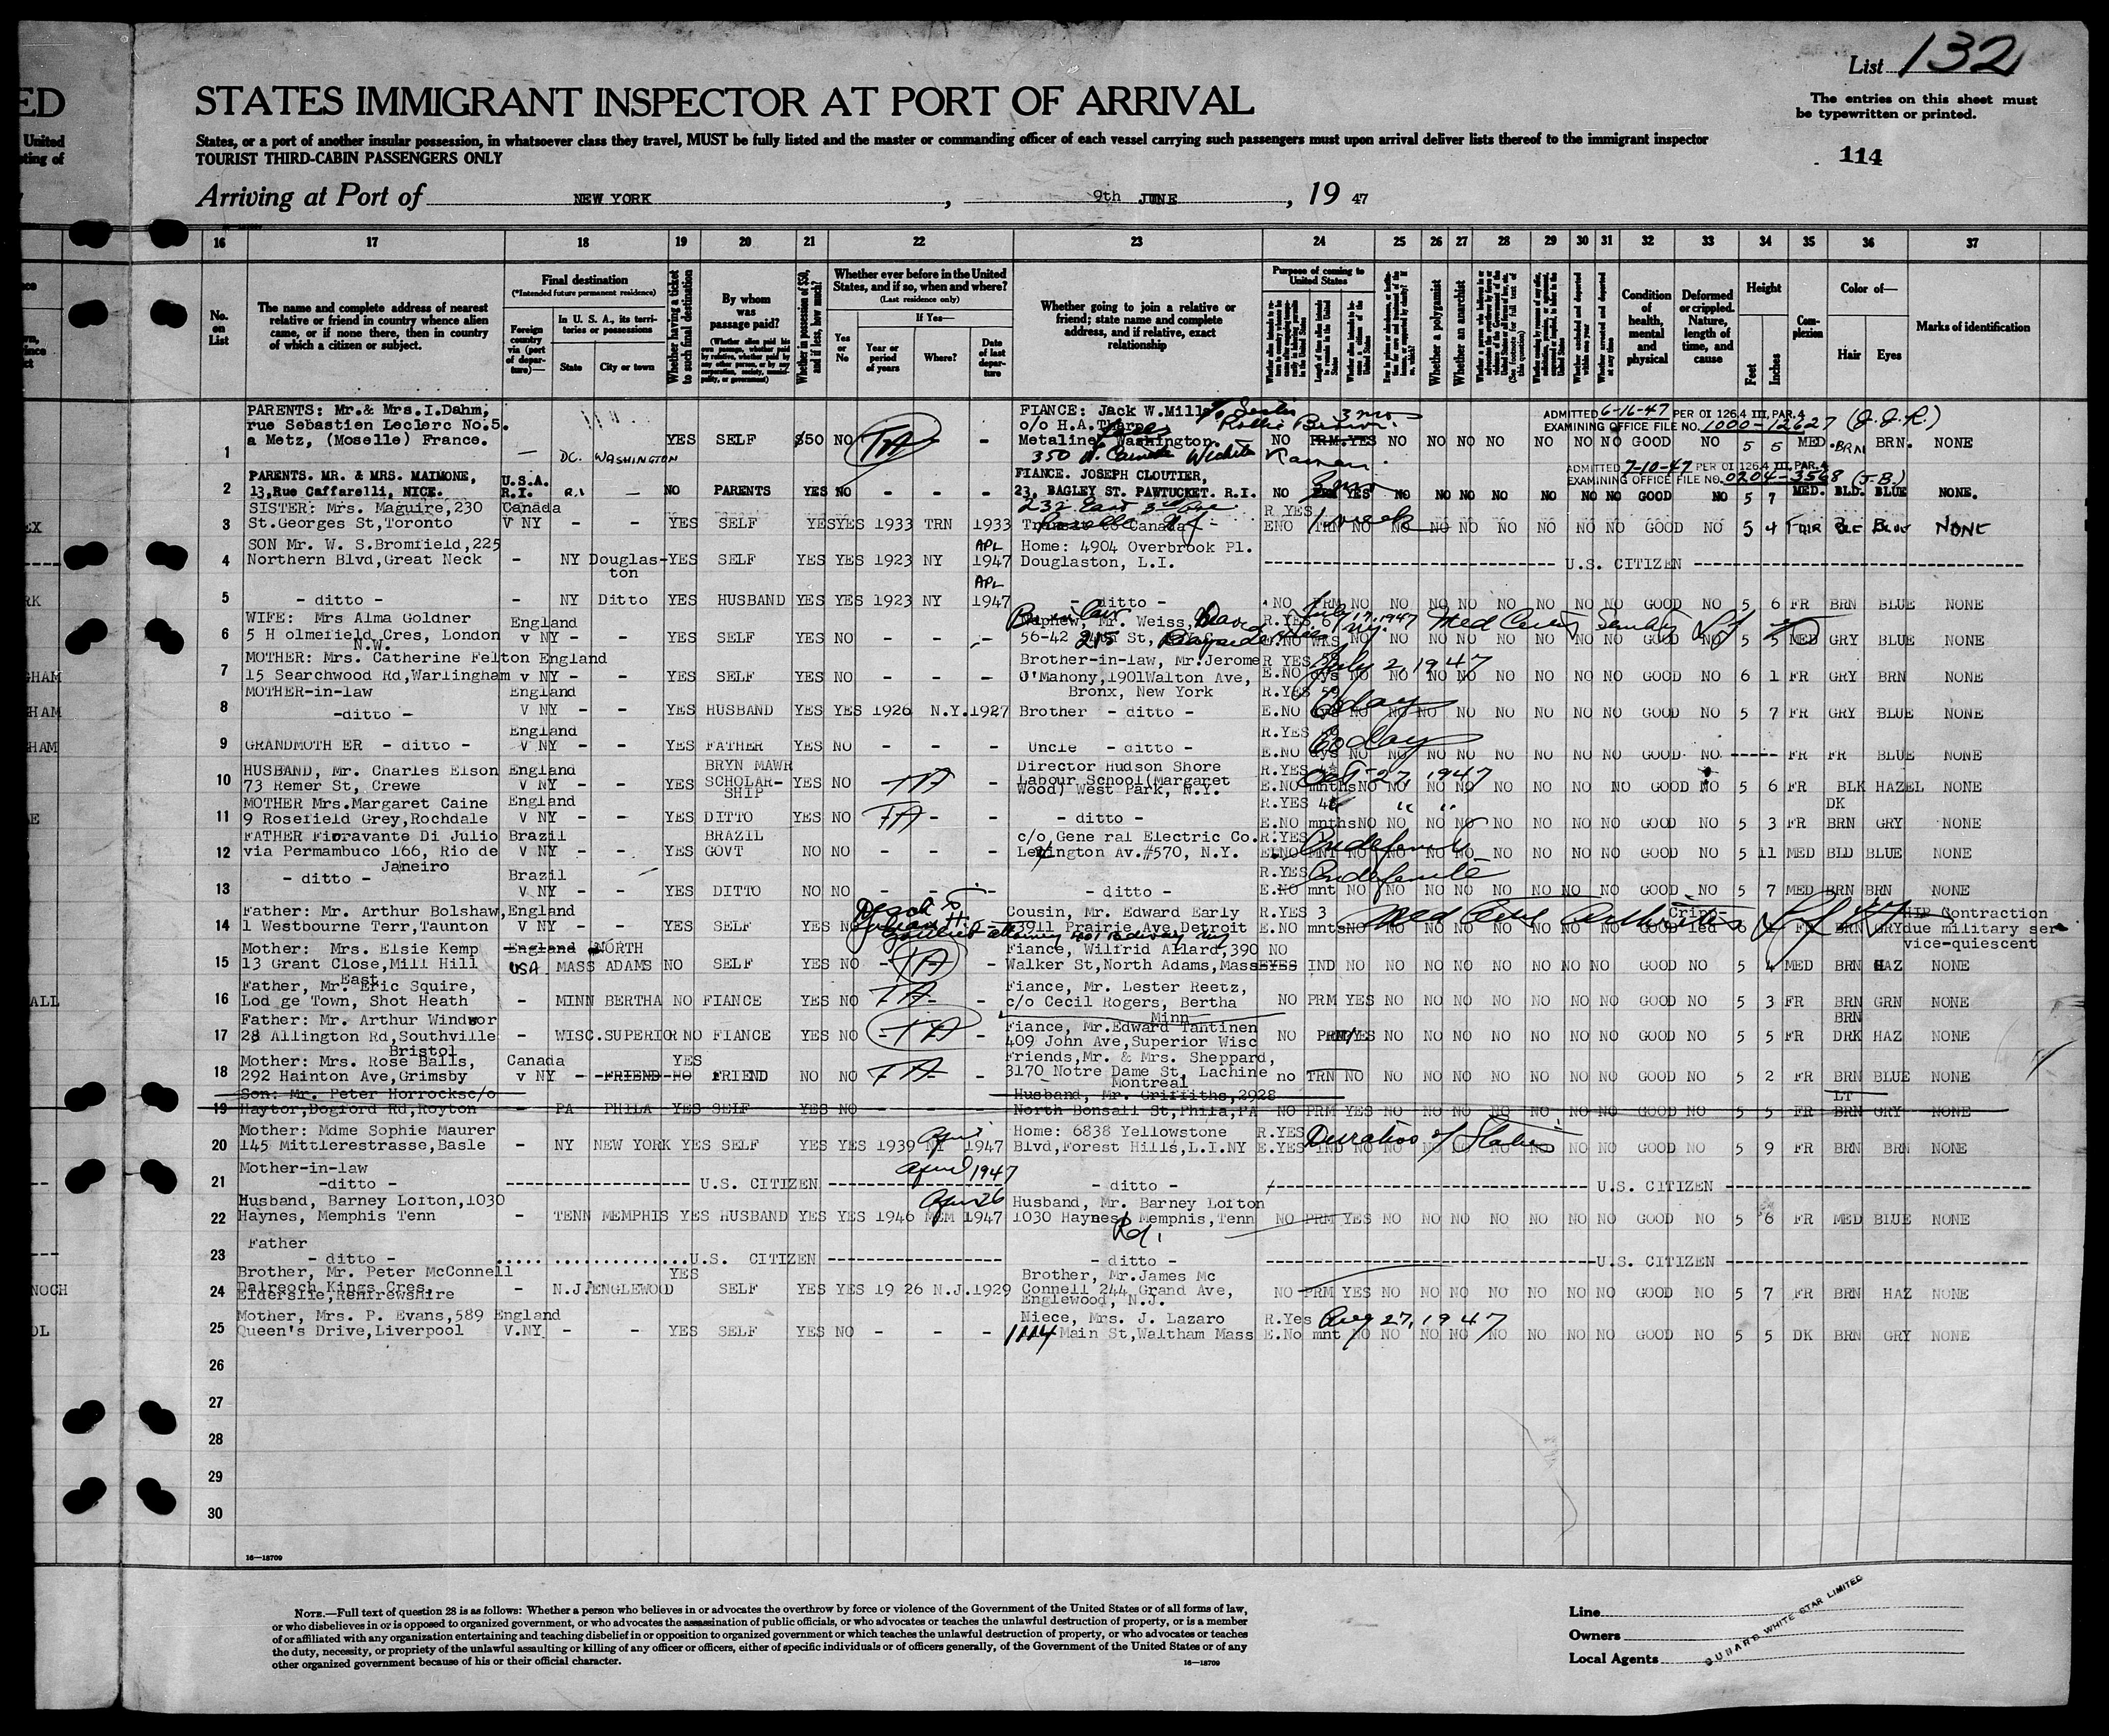 ED
United
ting of
List 132
STATES IMMIGRANT INSPECTOR AT PORT OF ARRIVAL
The entries on this sheet must
be typewritten or printed.
States, or a port of another insular possession, in whatsoever class they travel, MUST be fully listed and the master or commanding officer of each vessel carrying such passengers must upon arrival deliver lists thereof to the immigrant inspector
TOURIST THIRD-CABIN PASSENGERS ONLY
114
Arriving at Port of NEW YORK, 9th JUNE, 19 47
16 17 18 19 20 21 22 23 24 25 26 27 28 29 30 31 32 33 34 35 36 37
No. on List
The name and complete address of nearest relative or friend in country whence alien came, or if none there, then in country of which a citizen or subject.
Final destination
(*Intended future permanent residence)
Foreign country via (port of departure)—
In U. S. A., its territories or possessions
State City or town
Whether having a ticket to such final destination
By whom was passage paid?
(Whether alien paid his own passage, whether paid by relative, whether paid by any other person, or by any corporation, society, municipality, or government)
Whether in possession of $50, and if less, how much?
Whether ever before in the United States, and if so, when and where?
(Last residence only)
Yes or No
If Yes—
Year or period of years Where? Date of last departure
Whether going to join a relative or friend; state name and complete address, and if relative, exact relationship
Purpose of coming to United States
Whether a polygamist
Whether an anarchist
Condition of health, mental and physical
Deformed or crippled. Nature, length of time, and cause
Height
Feet Inches
Complexion
Color of—
Hair Eyes
Marks of identification
PARENTS: Mr.& Mrs.I.Dahm, FIANCE: Jack W.Mills 3 mos ADMITTED 6-16-47 PER OI 126.4 III, PAR.4
rue Sebastien Leclerc No.5. c/o H.A.Tharpe EXAMINING OFFICE FILE NO. 1000-12627 (J.J.R.)
1 a Metz, (Moselle) France. — DC. WASHINGTON YES SELF $50 NO TA - Metaline, Washington. NO PRM YES NO NO NO NO NO NO NO GOOD NO 5 5 MED. BRN BRN. NONE
PARENTS. MR. & MRS. MAIMONE, U.S.A. FIANCE. JOSEPH CLOUTIER, ADMITTED 7-10-47 PER OI 126.4 III, PAR.4
EXAMINING OFFICE FILE NO. 0204-3568 (J.B.)
2 13,Rue Caffarelli, NICE. R.I. R.I — NO PARENTS YES NO - - - 23, BAGLEY ST. PAWTUCKET. R.I. NO PRM YES NO NO NO NO NO NO NO GOOD NO 5 7 MED. BLD. BLUE NONE.
SISTER: Mrs. Maguire,230 Canada 232 East
3 St.Georges St,Toronto V NY - - YES SELF YES YES 1933 TRN 1933 Transit to Canada R YES ENO TRN NO 1 week NO NO NO NO NO NO NO GOOD NO 5 4 FAIR BLE BLUE NONE
SON Mr. W. S.Bromfield,225 APL Home: 4904 Overbrook Pl.
4 Northern Blvd,Great Neck - NY Douglas-ton YES SELF YES YES 1923 NY 1947 Douglaston, L.I. U.S. CITIZEN
APL
5 - ditto - - NY Ditto YES HUSBAND YES YES 1923 NY 1947 - ditto - NO PRM NO NO NO NO NO NO NO NO GOOD NO 5 6 FR BRN BLUE NONE
WIFE: Mrs Alma Goldner England Nephew, Mr. Weiss, R.YES July 17, 1947
6 5 H olmefield Cres, London N.W. v NY - - YES SELF YES NO - - - 56-42 215 St, Bayside E.NO WKS NO NO NO NO NO NO NO NO GOOD NO 5 5 MED GRY BLUE NONE
MOTHER: Mrs. Catherine Felton England Brother-in-law, Mr.Jerome R YES July 2, 1947
7 15 Searchwood Rd,Warlingham v NY - - YES SELF YES NO - - - O'Mahony,1901Walton Ave, E.NO dys NO NO NO NO NO NO NO NO GOOD NO 6 1 FR GRY BRN NONE
MOTHER-in-law England Bronx, New York R.YES
8 -ditto - V NY - - YES HUSBAND YES YES 1926 N.Y. 1927 Brother - ditto - E.NO 60 day NO NO NO NO NO NO NO NO GOOD NO 5 7 FR GRY BLUE NONE
England R.YES
9 GRANDMOTH ER - ditto - V NY - - YES FATHER YES NO - - - Uncle - ditto - E.NO dys 60 day NO NO NO NO NO NO NO NO GOOD NO ----- FR FR BLUE NONE
HUSBAND, Mr. Charles Elson England BRYN MAWR Director Hudson Shore R.YES Oct 27, 1947
10 73 Remer St, Crewe V NY - - YES SCHOLAR-SHIP YES NO TA - Labour School(Margaret Wood) West Park, N.Y. E.NO mnths NO NO NO NO NO NO NO NO GOOD NO 5 6 FR BLK HAZEL NONE
MOTHER Mrs.Margaret Caine England R.YES " " DK
11 9 Rosefield Grey,Rochdale V NY - - YES DITTO YES NO TA - - - ditto - E.NO mnths NO NO NO NO NO NO NO NO GOOD NO 5 3 FR BRN GRY NONE
FATHER Fioravante Di Julio Brazil BRAZIL c/o General Electric Co. R.YES Indefinite
12 via Permambuco 166, Rio de Janeiro V NY - - YES GOVT NO NO - - - Lexington Av.#570, N.Y. E.NO MNT NO NO NO NO NO NO NO NO GOOD NO 5 11 MED BLD BLUE NONE
Brazil R.YES Indefinite
13 - ditto - V NY - - YES DITTO NO NO - - - - ditto - E.NO mnt NO NO NO NO NO NO NO NO GOOD NO 5 7 MED BRN BRN NONE
Father: Mr. Arthur Bolshaw, England Cousin, Mr. Edward Early R.YES 3 Cripp- HIP Contraction
14 1 Westbourne Terr,Taunton V NY - - YES SELF YES NO 13911 Prairie Ave,Detroit E.NO mnts NO GOOD led 6 FR BRN GRY due military ser-
vice-quiescent
Mother: Mrs. Elsie Kemp England NORTH Fiance, Wilfrid Allard,390 NO
15 13 Grant Close,Mill Hill East USA MASS ADAMS NO SELF YES NO - TA - Walker St,North Adams,Mass YES IND NO NO NO NO NO NO NO NO GOOD NO 5 4 MED BRN HAZ NONE
Father, Mr. Eric Squire, Fiance, Mr. Lester Reetz,
16 Lod ge Town, Shot Heath - MINN BERTHA NO FIANCE YES NO TA - c/o Cecil Rogers, Bertha Minn NO PRM YES NO NO NO NO NO NO NO GOOD NO 5 3 FR BRN GRN NONE
Father: Mr. Arthur Windsor Fiance, Mr.Edward Tantinen BRN
17 28 Allington Rd,Southville Bristol - WISC. SUPERIOR NO FIANCE YES NO TA - 409 John Ave,Superior Wisc NO PRM YES NO NO NO NO NO NO NO GOOD NO 5 5 FR DRK HAZ NONE
Mother: Mrs. Rose Balls, Canada YES Friends,Mr. & Mrs. Sheppard,
18 292 Hainton Ave,Grimsby v NY - FRIEND NO FRIEND NO NO TA - 3170 Notre Dame St, Lachine Montreal no TRN NO NO NO NO NO NO NO NO GOOD NO 5 2 FR BRN BLUE NONE
Son: Mr. Peter Horrocksc/o Husband, Mr. Griffiths,2928 LT
19 Haytor,Dogford Rd,Royton - PA PHILA YES SELF YES NO - - - North Bonsall St,Phila,PA NO PRM YES NO NO NO NO NO NO NO GOOD NO 5 5 FR BRN GRY NONE
Mother: Mdme Sophie Maurer April Home: 6838 Yellowstone R.YES Duration of Status
20 145 Mittlerestrasse,Basle - NY NEW YORK YES SELF YES YES 1939 NY 1947 Blvd,Forest Hills,L.I.NY E.YES IND NO NO NO NO NO NO NO NO GOOD NO 5 9 FR BRN BRN NONE
Mother-in-law April 1947
21 -ditto - U.S. CITIZEN - ditto - U.S. CITIZEN
Husband, Barney Lofton,1030 Apr 26 Husband, Mr. Barney Lofton
22 Haynes, Memphis Tenn - TENN MEMPHIS YES HUSBAND YES YES 1946 MEM 1947 1030 Haynes Rd, Memphis,Tenn NO PRM YES NO NO NO NO NO NO NO GOOD NO 5 6 FR MED BLUE NONE
Father
23 - ditto - U.S. CITIZEN - ditto - U.S. CITIZEN
Brother, Mr. Peter McConnell YES Brother, Mr.James Mc
24 Balgaoth Kings Cres, Elderslie,Renfrewshire - N.J. ENGLEWOOD SELF YES YES 19 26 N.J. 1929 Connell 244 Grand Ave, Englewood, N.J. NO PRM YES NO NO NO NO NO NO NO GOOD NO 5 7 FR BRN HAZ NONE
Mother, Mrs. P. Evans,589 England Niece, Mrs. J. Lazaro R.Yes Aug 27, 1947
25 Queen's Drive,Liverpool V.NY - - YES SELF YES NO - - - 1114 Main St,Waltham Mass E.No mnt NO NO NO NO NO NO NO NO GOOD NO 5 5 DK BRN GRY NONE
26
27
28
29
30
16—18709
NOTE.—Full text of question 28 is as follows: Whether a person who believes in or advocates the overthrow by force or violence of the Government of the United States or of all forms of law,
or who disbelieves in or is opposed to organized government, or who advocates the assassination of public officials, or who advocates or teaches the unlawful destruction of property, or is a member
of or affiliated with any organization entertaining and teaching disbelief in or opposition to organized government or which teaches the unlawful destruction of property, or who advocates or teaches
the duty, necessity, or propriety of the unlawful assaulting or killing of any officer or officers, either of specific individuals or of officers generally, of the Government of the United States or of any
other organized government because of his or their official character.
16—18709
Line
Owners
Local Agents
CUNARD WHITE STAR LIMITED